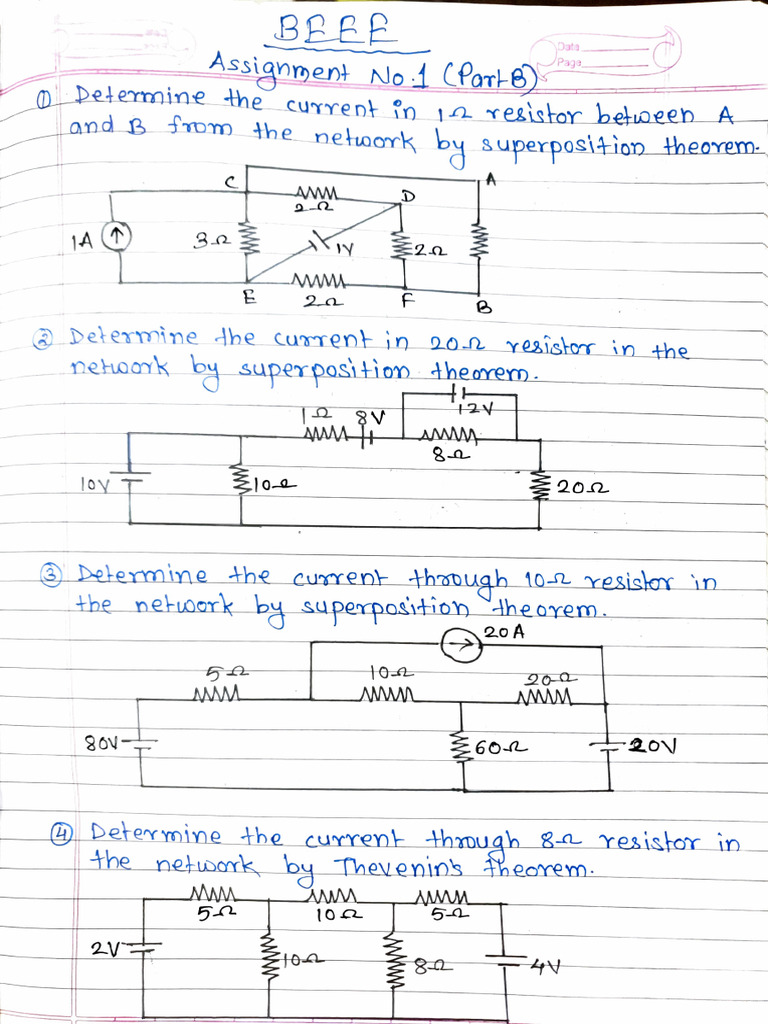 BEEE
Data
Page
Assignment No.1 (Part B)
① Determine the current in 1Ω resistor between A
and B from the network by superposition theorem.
C
A
2Ω
D
1A
3Ω
1V
2Ω
E
2Ω
F
B
② Determine the current in 20Ω resistor in the
network by superposition theorem.
1Ω 8V
12V
8Ω
10V
10Ω
20Ω
③ Determine the current through 10Ω resistor in
the network by superposition theorem.
20A
5Ω
10Ω
20Ω
80V
60Ω
20V
④ Determine the current through 8Ω resistor in
the network by Thevenin's theorem.
5Ω
10Ω
5Ω
2V
10Ω
8Ω
4V